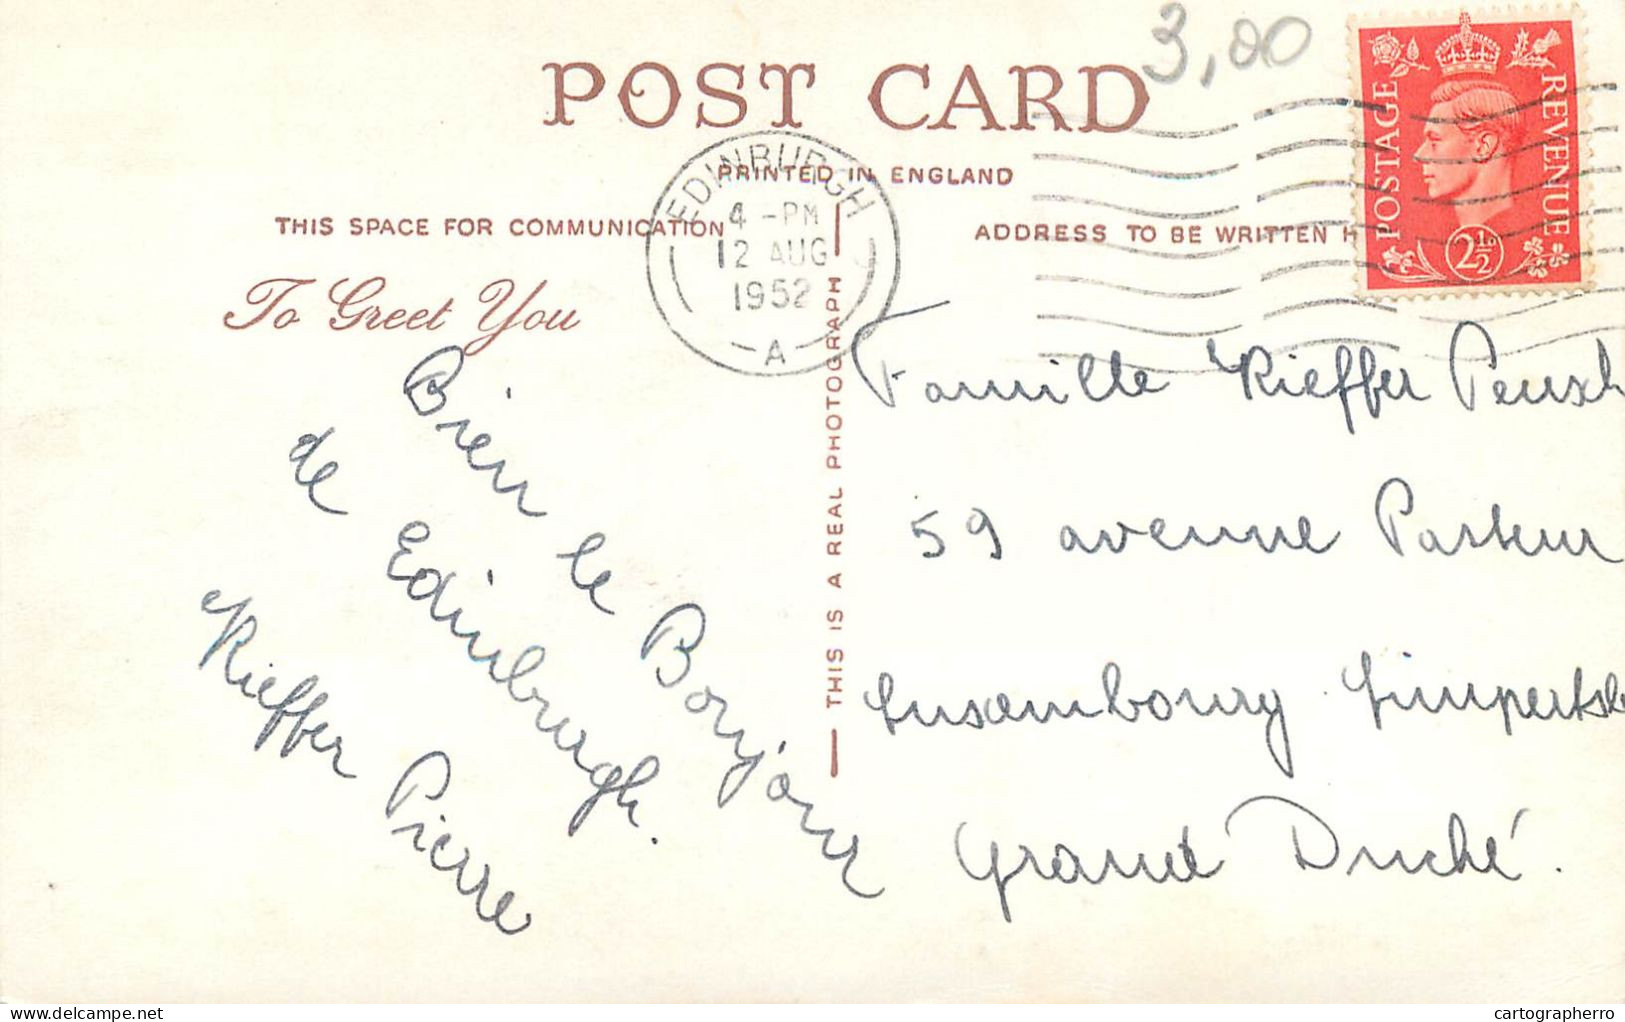 3,00
POST CARD
POSTAGE
REVENUE
2½D
PRINTED IN ENGLAND
EDINBURGH
4 -PM
12 AUG
1952
A
THIS SPACE FOR COMMUNICATION
ADDRESS TO BE WRITTEN H
THIS IS A REAL PHOTOGRAPH
To Greet You
Bien le Bonjour
de Edinburgh.
Kieffer Pierre
Famille Kieffer
59 avenue Pasteur
Luxembourg Limpertsb
Grand Duché.
delcampe.net
cartographerro